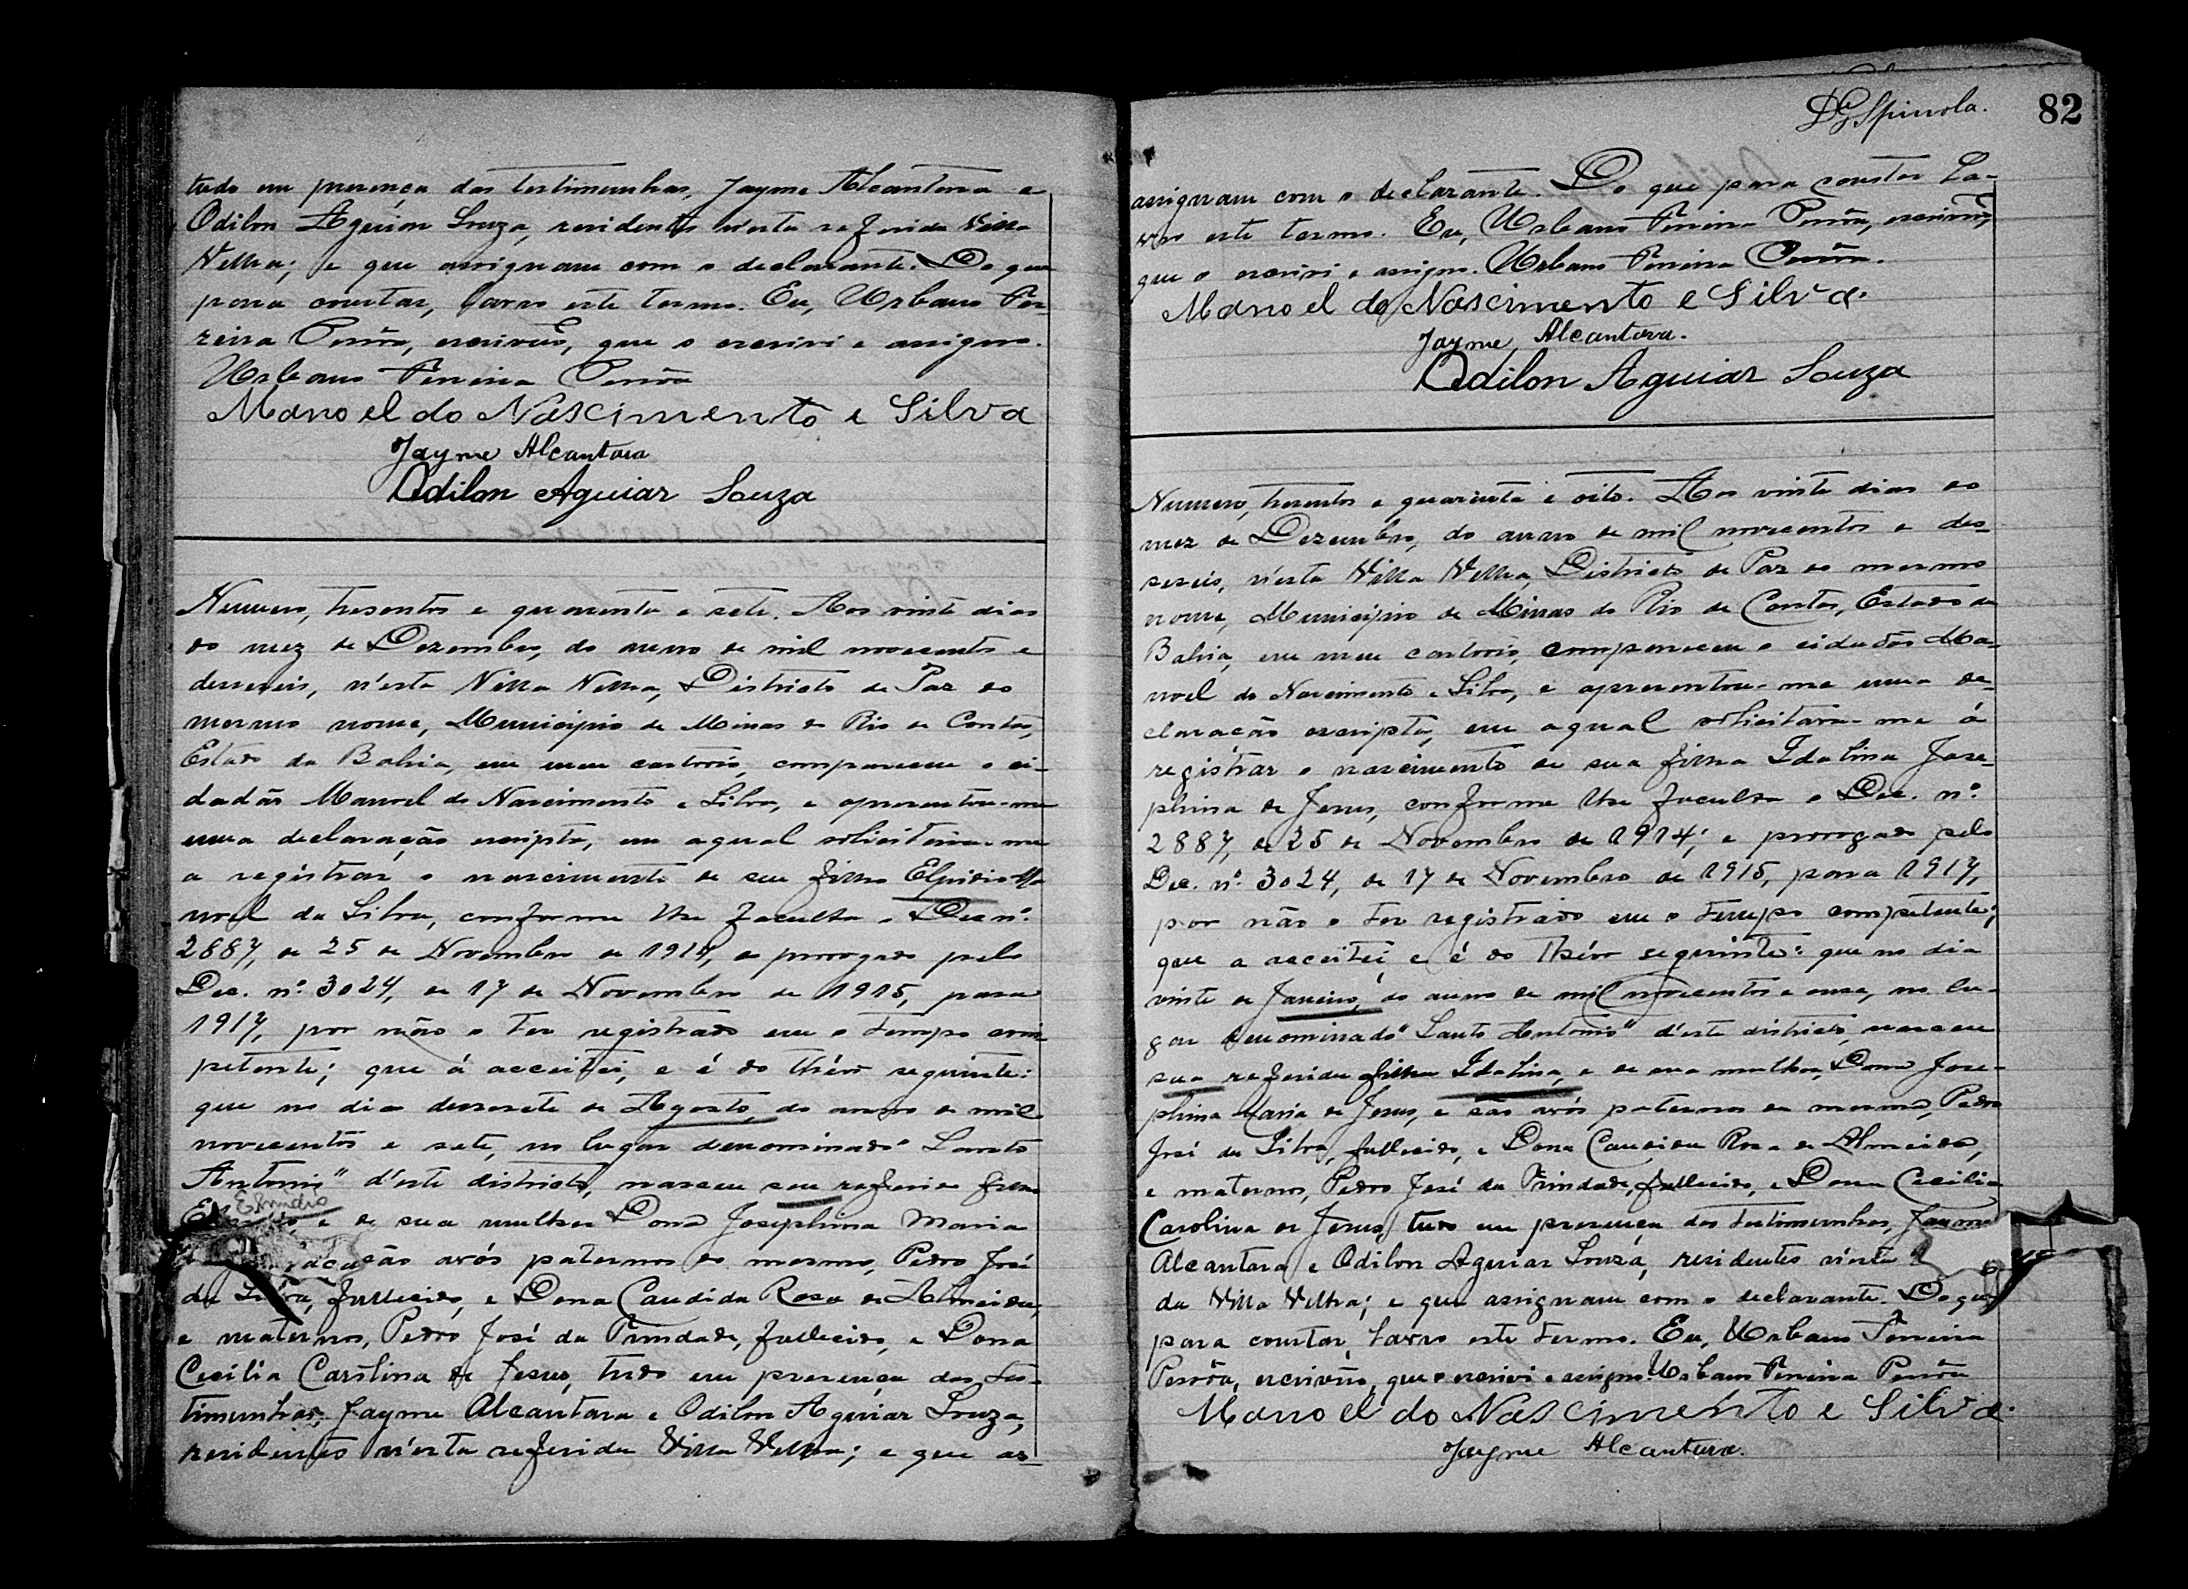 tudo em presença das testimunhas, Jayme Alcantara e
Odilon Aguiar Souza, residentes n'esta referida Villa
Velha; e que assignam com o declarante. Do que
para constar, lavro este termo. Eu, Urbano Pe-
reira Pessôa, escrivão, que o escrivi e assigno.
Urbano Pereira Pessôa
Manoel do Nascimento e Silva
Jayme Alcantara
Odilon Aguiar Souza
Numero, tresentos e quarenta e sete. Aos vinte dias
do mez de Dezembro, do anno de mil novecentos e
desseseis, n'esta Villa Velha, Districto de Paz do
mesmo nome, Municipio de Minas do Rio de Contas,
Estado da Bahia, em meu cartorio, compareceu o ci-
dadão Manoel do Nascimento e Silva, e apresentou-me
uma declaração escripta, em a qual solicitava-me
a registrar o nascimento de seu filho Elpidio Ma
noel da Silva, conforme lhe faculta o Dec. nº.
2887, de 25 de Novembro de 1914, e prorogado pelo
Dec. nº. 3024, de 17 de Novembro de 1915, para
1917, por não o ter registrado em o tempo com-
petente; que á acceitei, e é do théor seguinte:
que no dia dessesete de Agosto, do anno de mil
novecentos e sete, no lugar denominado "Santo
Antonio" d'este districto, nasceu seu referido filho
e de sua mulher Dona Josephina Maria
são avós paternos do mesmo, Pedro José
da Silva, fallecido, e Dona Candida Rosa de Almeida,
e maternos, Pedro José da Trindade, fallecido, e Dona
Cecilia Carolina de Jesus, tudo em presença das tes-
timunhas, Jayme Alcantara e Odilon Aguiar Souza,
residentes n'esta referida Villa Velha; e que as-
Spinola.
82
assignam com o declarante. Do que para constar la-
vro este termo. Eu, Urbano Pereira Pessôa, escrivão,
que o escrivi e assigno. Urbano Pereira Pessôa.
Manoel do Nascimento e Silva.
Jayme Alcantara.
Odilon Aguiar Souza
Numero, tresentos e quarenta e oito. Aos vinte dias do
mez de Dezembro, do anno de mil novecentos e des-
seseis, n'esta Villa Velha, Districto de Paz do mesmo
nome, Municipio de Minas do Rio de Contas, Estado da
Bahia, em meu cartorio, compareceu o cidadão Ma-
noel do Nascimento e Silva, e apresentou-me uma de-
claração escripta, em a qual solicitava-me á
registrar o nascimento de sua filha Idalina Jose-
phina de Jesus, conforme lhe faculta o Dec. nº.
2887, de 25 de Novembro de 1914; e prorogado pelo
Dec. nº. 3024, de 17 de Novembro de 1915, para 1917,
por não o ter registrado em o tempo competente;
que a acceitei, e é do théor seguinte: que no dia
vinte de Janeiro, do anno de mil novecentos e onze, no lu-
gar denominado "Santo Antonio" d'este districto, nasceu
sua referida filha Idalina, e de sua mulher, Dona Jose-
phina Maria de Jesus, e são avós paternos da mesma, Pedro
José da Silva, fallecido, e Dona Candida Rosa de Almeida,
e maternos, Pedro José da Trindade, fallecido, e Dona Cecilia
Carolina de Jesus, tudo em presença das testimunhas, Jayme
Alcantara e Odilon Aguiar Souza, residentes n'esta
da Villa Velha; e que assignam com o declarante. Do que
para constar, lavro este termo. Eu, Urbano Pereira
Pessôa, escrivão, que o escrivi e assigno. Urbano Pereira Pessôa
Manoel do Nascimento e Silva.
Jayme Alcantara.